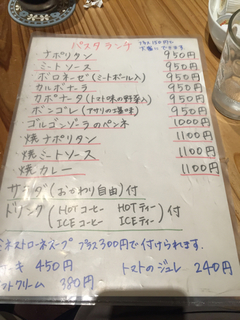 パスタランチ
プラス150円で
大盛にできます
ナポリタン 950円
ミートソース 950円
ボロネーゼ(ミートボール入) 950円
カルボナーラ 950円
カポナータ(トマト味の野菜入) 950円
ボンゴレ(アサリの塩味) 950円
ゴルゴンゾーラのペンネ 1000円
焼ナポリタン 1100円
焼ミートソース 1100円
焼カレー 1100円
サラダ(おかわり自由)付
ドリンク(HOTコーヒー HOTティー
ICEコーヒー ICEティー)付
ミネストローネスープ プラス300円で付けられます。
ーキ 450円 トマトのジュレ 240円
フトクリーム 380円